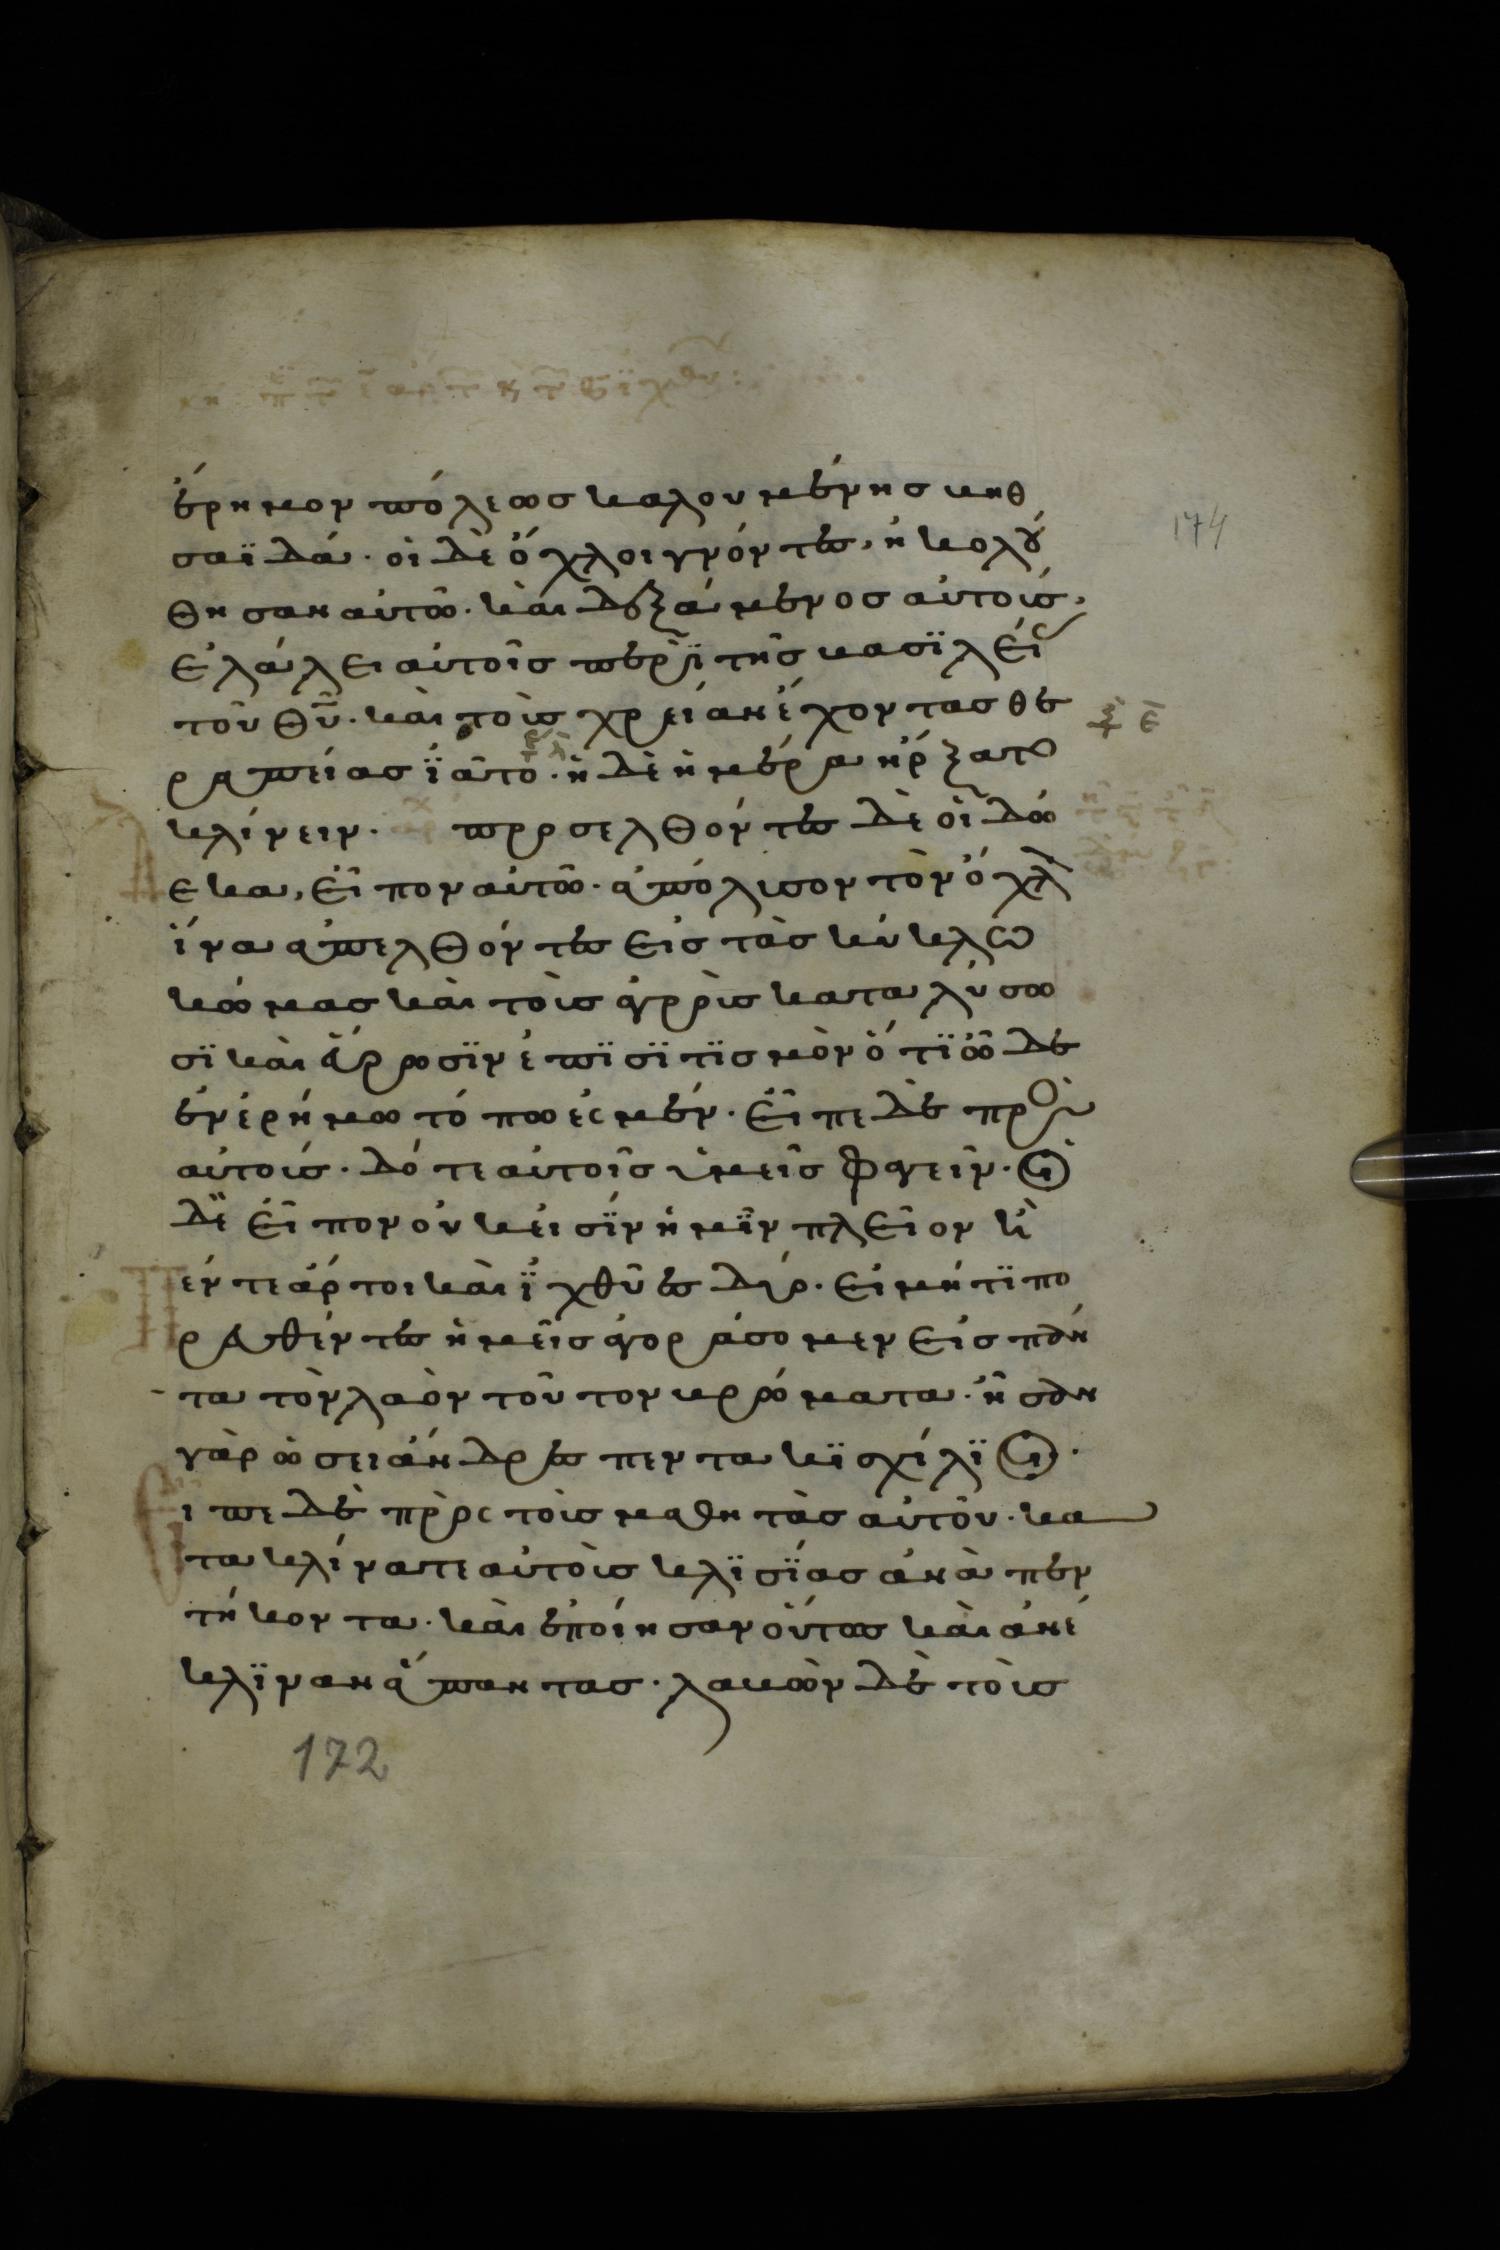 174
ἔρημον πόλεως καλουμένης βηθ
σαϊδά· οἱ δὲ ὄχλοι γνόντες, ἠκολού
θησαν αὐτῶ· καὶ δεξάμενος αὐτοὺς,
ἐλάλει αὐτοῖς περὶ τῆς βασϊλεί(ας)
τοῦ θῦ· καὶ τοὺς χρείαν ἔχοντας θε
ραπείας ϊᾶτο· ἡ δὲ ἡμέρα ἤρξατο
κλίνειν· προσελθόντες δὲ οἱ δώ
εκα, εἶπον αὐτῶ· ἀπόλυσον τὸν ὄχλ
ἵνα ἀπελθόντες εἰς τὰς κύκλω
κώμας καὶ τοὺς ἀγροὺς καταλύσω
σϊ καὶ εὕρωσϊν ἐπϊσϊτϊσμὸν ὅτϊ ὧδε
ἐν ἐρήμω τόπω ἐσμέν· εἶπε δὲ πρὸς
αὐτούς· δότε αὐτοῖς ὑμεῖς φαγεῖν· οἱ
δὲ εἶπον οὐκ εἰσϊν ἡμῖν πλεῖον ἢ
εντε ἄρτοι καὶ ϊχθύες δύο· εἰ μήτϊ πο
ρευθέντες ἡμεῖς ἀγοράσομεν εἰς πάν
τα τὸν λαὸν τοῦτον βρώματα· ἦσαν
γὰρ ὡσεὶ ἄνδρες πεντακϊσχίλϊοι·
ιπε δὲ πρὸς τοὺς μαθητὰς αὐτοῦ· κα
τακλίνατε αὐτοὺς κλϊσϊας ἀνὰ πεν
τήκοντα· καὶ ἐποίησαν οὕτως καὶ ἀνέ
κλϊναν ἅπαντας· λαβὼν δὲ τοὺς
172